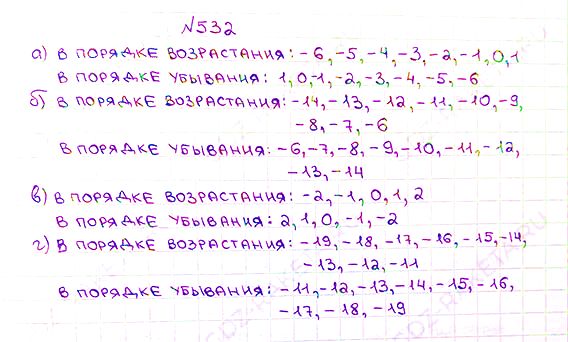 №532
а) В ПОРЯДКЕ ВОЗРАСТАНИЯ: -6, -5, -4, -3, -2, -1, 0, 1
В ПОРЯДКЕ УБЫВАНИЯ: 1, 0, -1, -2, -3, -4, -5, -6
б) В ПОРЯДКЕ ВОЗРАСТАНИЯ: -14, -13, -12, -11, -10, -9,
-8, -7, -6
В ПОРЯДКЕ УБЫВАНИЯ: -6, -7, -8, -9, -10, -11, -12,
-13, -14
в) В ПОРЯДКЕ ВОЗРАСТАНИЯ: -2, -1, 0, 1, 2
В ПОРЯДКЕ УБЫВАНИЯ: 2, 1, 0, -1, -2
г) В ПОРЯДКЕ ВОЗРАСТАНИЯ: -19, -18, -17, -16, -15, -14,
-13, -12, -11
В ПОРЯДКЕ УБЫВАНИЯ: -11, -12, -13, -14, -15, -16,
-17, -18, -19